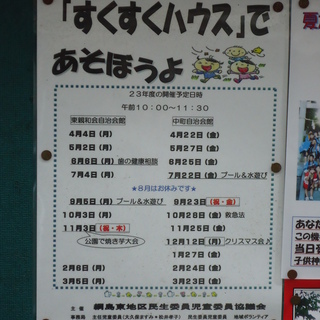 「すくすくハウス」で
あそぼうよ
23年度の開催予定日時
午前10:00〜11:30
東綱和会自治会館
4月4日(月)
5月2日(月)
6月6日(月) 歯の健康相談
7月4日(月)
中町自治会館
4月22日(金)
5月27日(金)
6月25日(金)
7月22日(金) プール&水遊び
★8月はお休みです★
9月5日(月) プール&水遊び
10月3日(月)
11月3日(祝・木)
公園で焼き芋大会
2月6日(月)
3月5日(月)
9月23日(祝・金)
10月28日(金) 救急法
11月25日(金)
12月12日(月) クリスマス会♪
1月27日(金)
2月24日(金)
3月23日(金)
主催 綱島東地区民生委員児童委員協議会
事務局 主任児童委員
民生委員児童委員 地域ボランティア
あなた
この機
当日
子供神